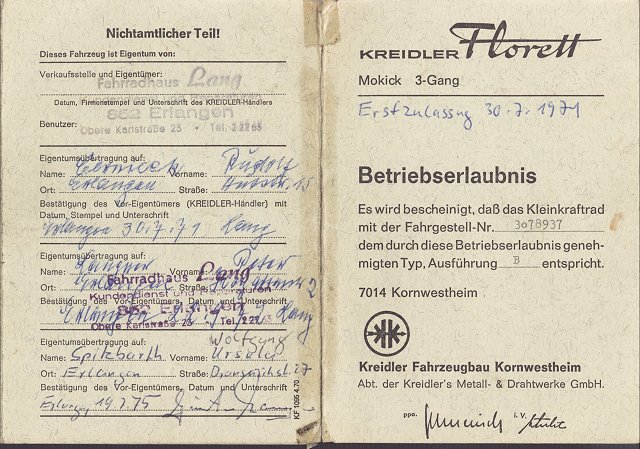 Nichtamtlicher Teil!
Dieses Fahrzeug ist Eigentum von:
Verkaufsstelle und Eigentümer:
Fahrradhaus Lang
Datum, Firmenstempel und Unterschrift des KREIDLER-Händlers
852 Erlangen
Benutzer:
Obere Karlstraße 23 • Tel. 2 22 63
Eigentumsübertragung auf:
Name: Vorname: Rudolf
Ort: Erlangen Straße: 15
Bestätigung des Vor-Eigentümers (KREIDLER-Händler) mit
Datum, Stempel und Unterschrift
Erlangen 30.7.71 Lang
Eigentumsübertragung auf:
Name: Vorname: Peter
Fahrradhaus Lang
Ort: Erlangen Straße: 2
Kundendienst und Reparaturen
Bestätigung des Vor-Eigentümers, Datum und Unterschrift
852 Erlangen
Erlangen Lang
Obere Karlstraße 23 Tel. 2 22 63
Wolfgang
Eigentumsübertragung auf:
Name: Spitzbarth Vorname: Ursula
Ort: Erlangen Straße: 27
Bestätigung des Vor-Eigentümers, Datum und Unterschrift
Erlangen, 19.7.75
KF 1095 4.70
KREIDLER Florett
Mokick 3-Gang
Erstzulassung 30.7.1971
Betriebserlaubnis
Es wird bescheinigt, daß das Kleinkraftrad
mit der Fahrgestell-Nr. 3o78937
dem durch diese Betriebserlaubnis geneh-
migten Typ, Ausführung B entspricht.
7014 Kornwestheim
Kreidler Fahrzeugbau Kornwestheim
Abt. der Kreidler's Metall- & Drahtwerke GmbH.
ppa. i. V.